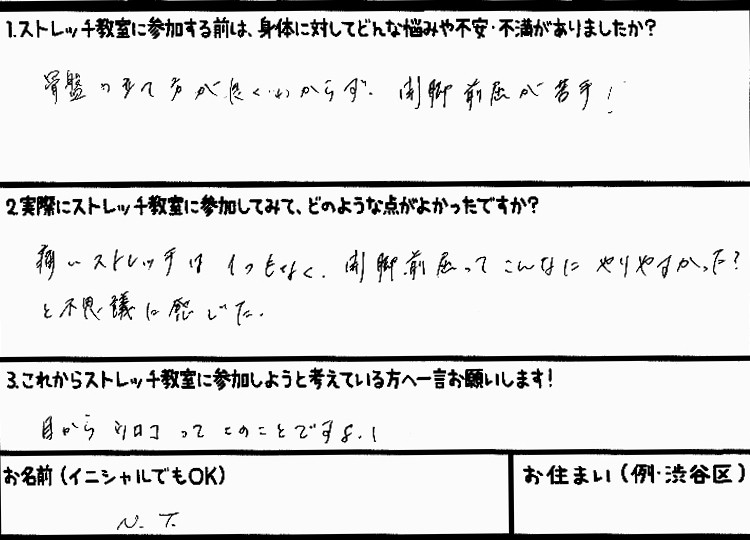 1.ストレッチ教室に参加する前は、身体に対してどんな悩みや不安・不満がありましたか?
骨盤の立て方が良くわからず、開脚前屈が苦手!
2.実際にストレッチ教室に参加してみて、どのような点がよかったですか?
痛いストレッチは1つもなく、開脚前屈ってこんなにやりやすかった?
と不思議に感じた。
3.これからストレッチ教室に参加しようと考えている方へ一言お願いします!
目からウロコってこのことですよ!
お名前(イニシャルでもOK)
お住まい(例・渋谷区)
N.T.